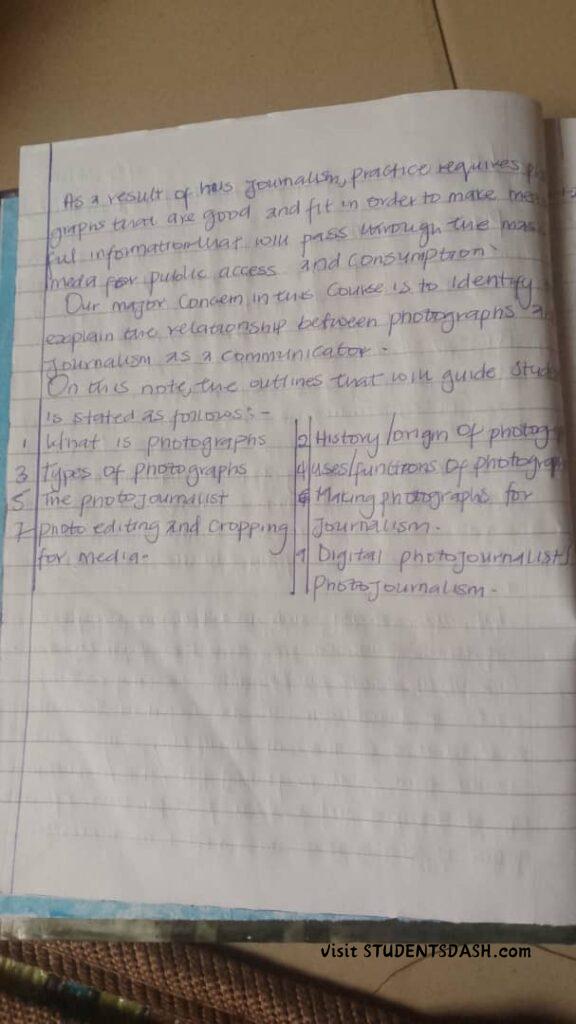 As a result of this journalism, practice requires
graphs that are good and fit in order to make
ful information that will pass through the
media for public access and consumption.
Our major Concern in this Course is to identify
explain the relationship between photographs
journalism as a communicator.
On this note, the outlines that will guide
is stated as follows:-
1 What is photographs
2 History/origin of
3 Types of photographs
4 uses/functions of
5 The photojournalist
6 Making photographs for
journalism.
7 photo editing and cropping
for media.
Digital photojournalist
Photojournalism.
Visit STUDENTSDASH.com